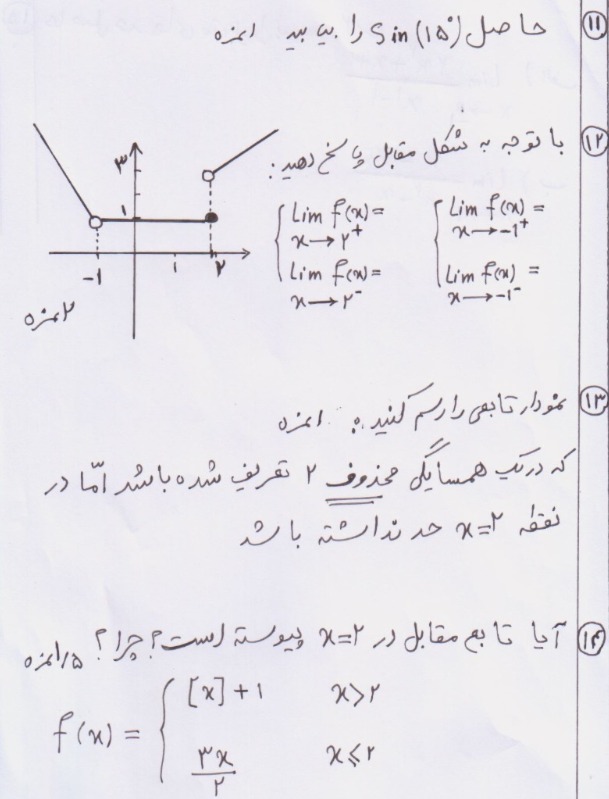 ۱۱ حاصل Sin(۱۵°) را بیابید ۱نمره
۱۲ با توجه به شکل مقابل پاسخ دهید:
Lim f(x)= x→۲⁺
Lim f(x)= x→۲⁻
Lim f(x)= x→-۱⁺
Lim f(x)= x→-۱⁻
۳
۱
-۱ ۱ ۲
۲نمره
۱۳ نمودار تابعی را رسم کنید: ۱نمره
که در یک همسایگی محذوف ۲ تعریف شده باشد امّا در
نقطه x=۲ حد نداشته باشد
۱۴ آیا تابع مقابل در x=۲ پیوسته است؟ چرا؟ ۱/۵نمره
f(x) = { [x]+۱ x>۲
۳x/۲ x≤۲